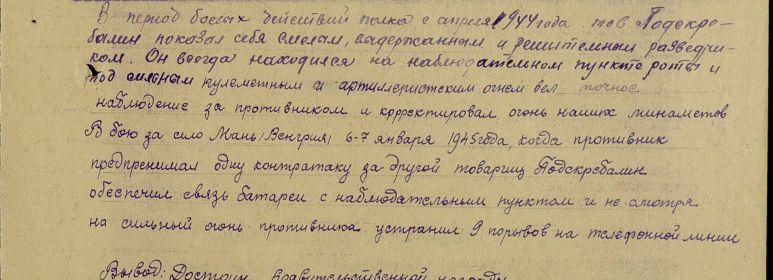 В период боевых действий полка с апреля 1944 года тов Подскре-
балин показал себя смелым, выдержанным и решительным разведчи-
ком. Он всегда находился на наблюдательном пункте роты и
под сильным пулеметным и артилеристским огнем вел точное
наблюдение за противником и корректировал огонь наших минаметов
В бою за село Мань /Венгрия/ 6-7 января 1945 года, когда противник
предпренимал одну контратаку за другой товарищ Подскребалин
обеспечил связь батареи с наблюдательным пунктом и не смотря
на сильный огонь противника устранил 9 порывов на телефонной линии
Вывод: Достоин правительственной награды